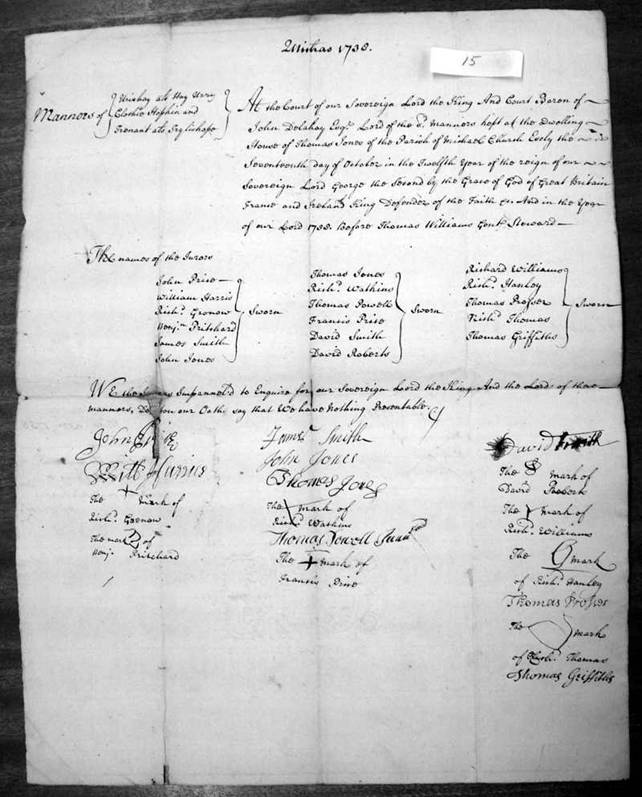 Michas 1738.
15
Mannors of
Urishay als Hay Urry
Clothie Hopkin and
Trenant als Inglishope
At the Court of our Sovereign Lord the King And Court Baron of
John Delahay Esqr. Lord of the sd. Mannors hest at the Dwelling
House of Thomas Jones of the Parish of Michael Church Esely the
Seventeenth day of October in the Twelfth Year of the reign of our
Sovereign Lord George the Second by the Grace of God of Great Britain
France and Ireland King Defender of the Faith &c And in the Year
of our Lord 1738. Before Thomas Williams Gent. Steward
The names of the Jurors
John Price
William Harris
Richd. Gronow
Benj. Pritchard
James Smith
John Jones
Sworn
Thomas Jones
Richd. Watkins
Thomas Powell
Francis Price
David Smith
David Roberts
Sworn
Richard Williams
Richd. Hanley
Thomas Prosser
Richd. Thomas
Thomas Griffiths
Sworn
We the Jurors Impannel'd to Enquire for our Sovereign Lord the King And the Lord of these
mannors, Do on our Oaths say that We have Nothing Presentable.
John Price
Will Harris
The mark of
Richd. Gronow
The mark of
Benj. Pritchard
James Smith
John Jones
Thomas Jones
The mark of
Richd. Watkins
Thomas Powell Junr
The mark of
Francis Price
David Smith
The mark of
David Roberts
The mark of
Richd. Williams
The mark
of Richd. Hanley
Thomas Prosser
The mark
of Richd. Thomas
Thomas Griffiths